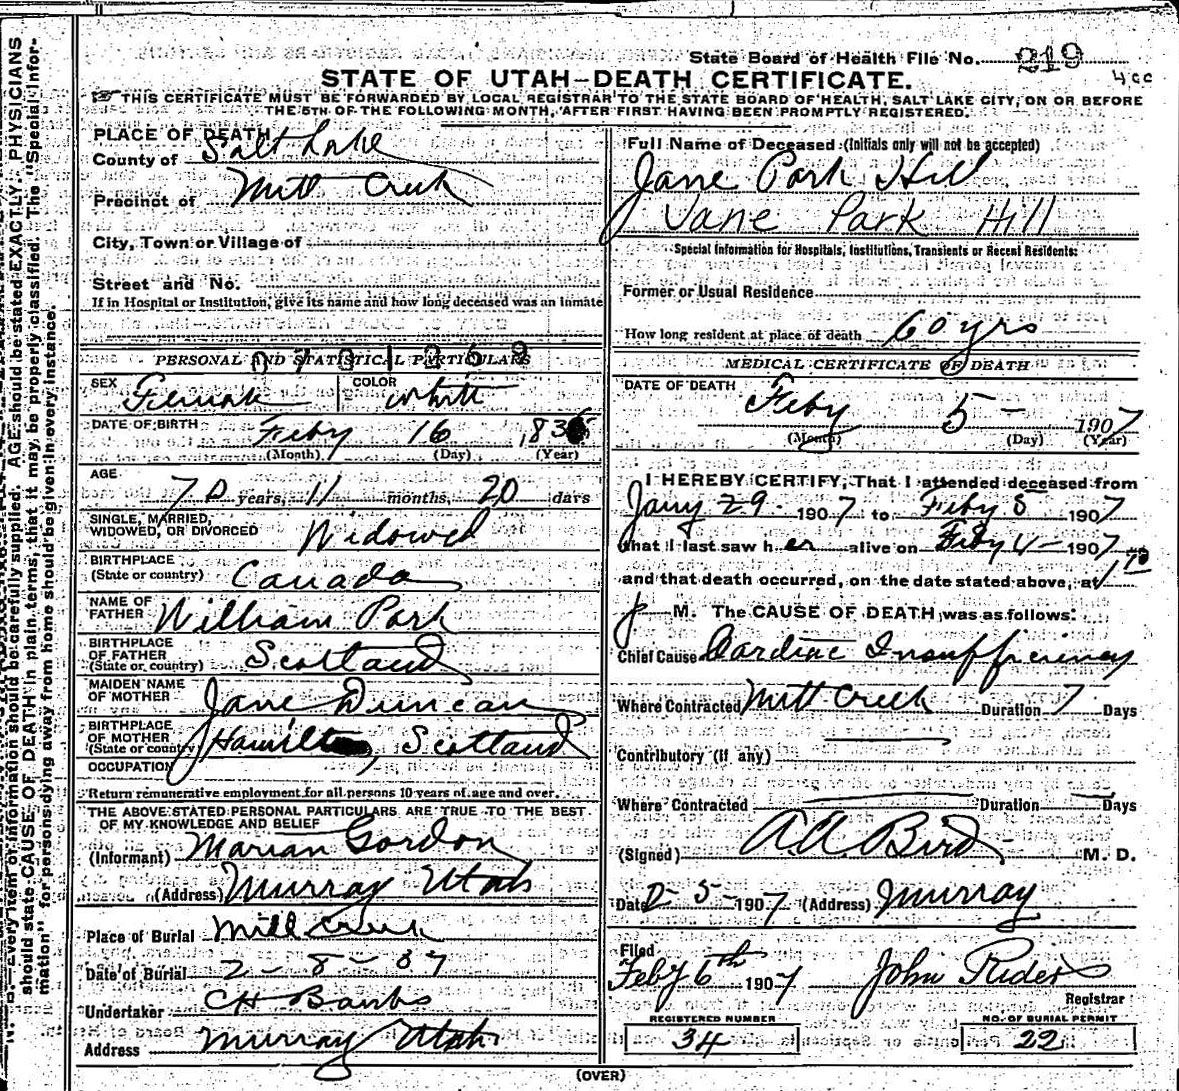 State Board of Health File No. 219
4cc
STATE OF UTAH—DEATH CERTIFICATE.
☞ THIS CERTIFICATE MUST BE FORWARDED BY LOCAL REGISTRAR TO THE STATE BOARD OF HEALTH, SALT LAKE CITY, ON OR BEFORE
THE 5TH OF THE FOLLOWING MONTH, AFTER FIRST HAVING BEEN PROMPTLY REGISTERED.
PLACE OF DEATH
County of Salt Lake
Precinct of Mill Creek
City, Town or Village of
Street and No.
If in Hospital or Institution, give its name and how long deceased was an inmate
PERSONAL AND STATISTICAL PARTICULARS
SEX Female COLOR white
DATE OF BIRTH Feby 16 1836
(Month) (Day) (Year)
AGE 70 years, 11 months, 20 days
SINGLE, MARRIED,
WIDOWED, OR DIVORCED Widowed
BIRTHPLACE
(State or country) Canada
NAME OF
FATHER William Park
BIRTHPLACE
OF FATHER
(State or country) Scotland
MAIDEN NAME
OF MOTHER Jane Duncan
BIRTHPLACE
OF MOTHER
(State or country) Hamilton, Scotland
OCCUPATION
Return remunerative employment for all persons 10 years of age and over.
THE ABOVE STATED PERSONAL PARTICULARS ARE TRUE TO THE BEST
OF MY KNOWLEDGE AND BELIEF
(Informant) Marian Gordon
(Address) Murray Utah
Place of Burial Mill Creek
Date of Burial 2-8-07
Undertaker CH Banks
Address Murray Utah
Full Name of Deceased (Initials only will not be accepted)
Jane Park Hill
Jane Park Hill
Special Information for Hospitals, Institutions, Transients or Recent Residents:
Former or Usual Residence
How long resident at place of death 60 yrs
MEDICAL CERTIFICATE OF DEATH
DATE OF DEATH
Feby 5 - 1907
(Month) (Day) (Year)
I HEREBY CERTIFY, That I attended deceased from
Jany 29 - 1907 to Feby 5 1907
that I last saw her alive on Feby 4 - 1907
and that death occurred, on the date stated above, at 1
P M. The CAUSE OF DEATH was as follows:
Chief Cause Cardiac Insufficiency
Where Contracted Mill Creek Duration 7 Days
Contributory (if any)
Where Contracted Duration Days
(Signed) A.A. Bird M. D.
Date 2-5-1907 (Address) Murray
Filed
Feby 6th 1907 John Rider
Registrar
REGISTERED NUMBER NO. OF BURIAL PERMIT
34 22
(OVER)
N. B.—Every item of information should be carefully supplied. AGE should be stated EXACTLY. PHYSICIANS
should state CAUSE OF DEATH in plain terms, that it may be properly classified. The "Special Infor-
mation" for persons dying away from home should be given in every instance.